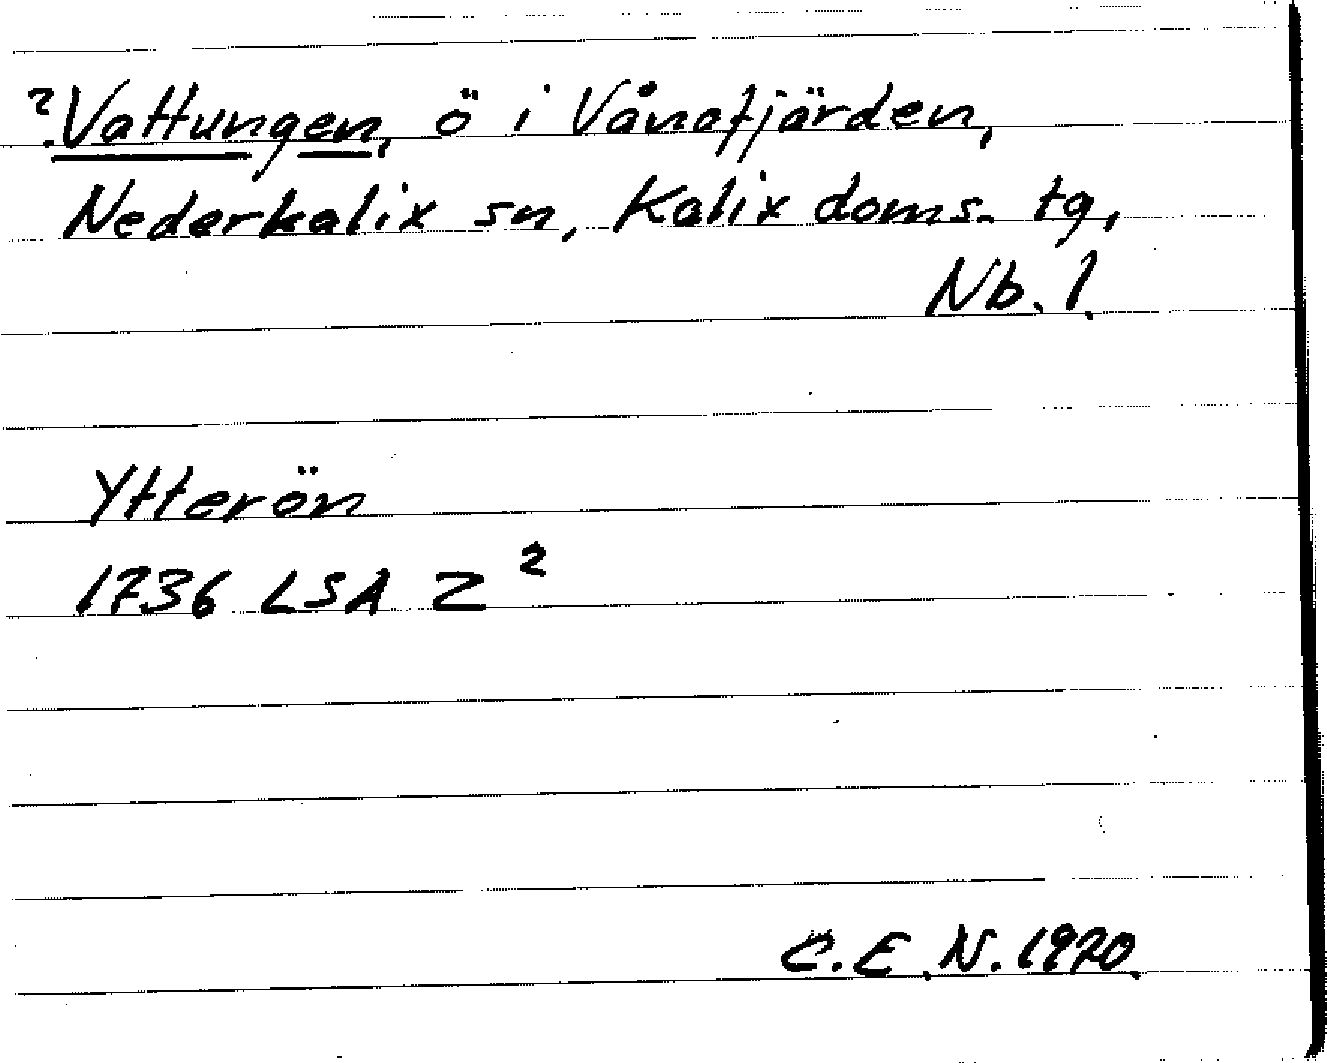 ? Vattungen, ö i Vånafjärden,
Nederkalix sn, Kalix doms. tg,
Nb. l.
Ytterön
1736 LSA Z ²
C. E. N. 1970.